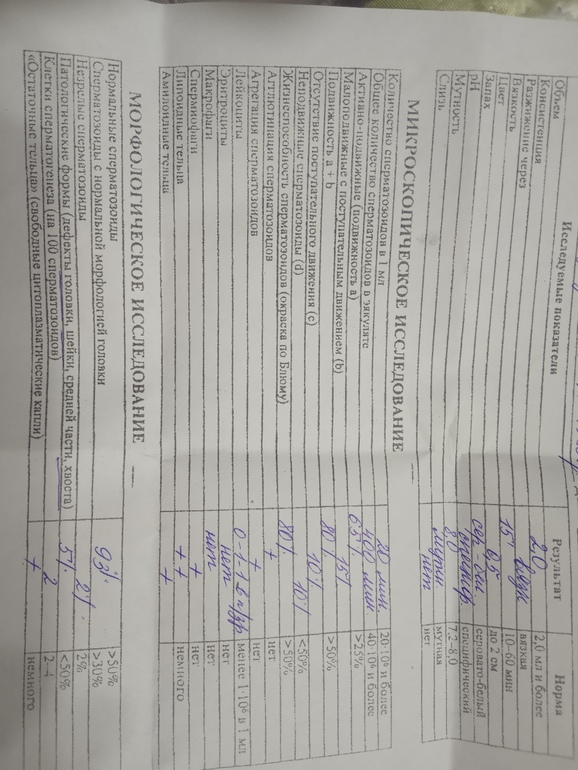 Исследуемые показатели Результат Норма
Объем 2,0 2,0 мл и более
Консистенция вязк вязкая
Разжижение через 15' 10–60 мин
Вязкость 0,5 до 2 см
Цвет сер-бел серовато-белый
Запах специф специфический
pH 8,0 7,2–8,0
Мутность мутн мутная
Слизь нет нет
МИКРОСКОПИЧЕСКОЕ ИССЛЕДОВАНИЕ
Количество сперматозоидов в 1 мл млн 20·10⁶ и более
Общее количество сперматозоидов в эякуляте 400 млн 40·10⁶ и более
Активно-подвижные (подвижность a) 65% >25%
Малоподвижные с поступательным движением (b) 15%
Подвижность a + b 80% >50%
Отсутствие поступательного движения (c) 10%
Неподвижные сперматозоиды (d) 10% <50%
Жизнеспособность сперматозоидов (окраска по Блюму) 80% >50%
Агглютинация сперматозоидов + нет
Агрегация сперматозоидов + нет
Лейкоциты 0-1-1 менее 1·10⁶ в 1 мл
Эритроциты нет нет
Макрофаги нет нет
Спермиофаги + нет
Липоидные тельца ++ немного
Амилоидные тельца +
МОРФОЛОГИЧЕСКОЕ ИССЛЕДОВАНИЕ
Нормальные сперматозоиды 93% >50%
Сперматозоиды с нормальной морфологией головки >30%
Незрелые сперматозоиды 2% 2%
Патологические формы (дефекты головки, шейки, средней части, хвоста) 5% <50%
Клетки сперматогенеза (на 100 сперматозоидов) 2 2–4
«Остаточные тельца» (свободные цитоплазматические капли) + немного